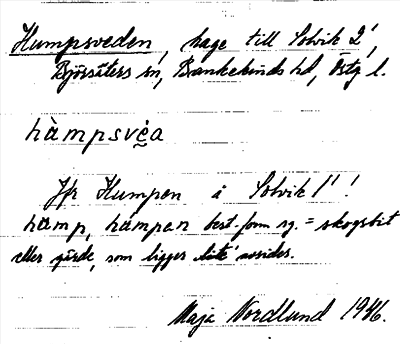 Humpsveden, hage till Solvik 2',
Björsäters sn, Bankekinds hd, Östg l.
hàmpsvèa
Jfr Humpen å Solvik 1'!
hamp, hampen best. form sg. = skogsbit
eller gärde, som ligger lite' avsides.
Maja Nordlund 1946.